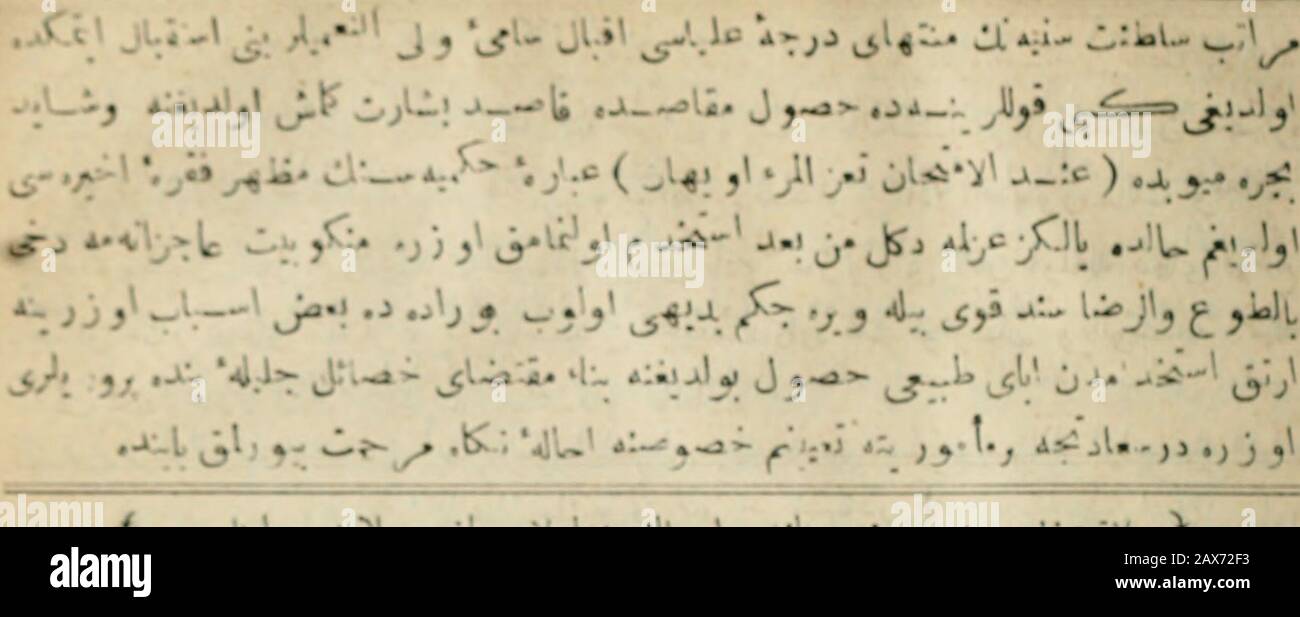 مراتب سلطنت سنیه نك منتهای درجهٔ علیاسی اقبال سامیٔ ولی النعمیلر ینی استقبال ایتمكده
اولدیغی كبی قوللر ینده ده حصول مقاصده قاصد بشارت كلمش اولدیغنه وشاید
تجر به میو بده ( عند الامتحان تعز المرء او یهان ) عبارهٔ حكمیه سنك مظهر فقرهٔ اخیره سی
اولدیغم حالده یالكز عزلمله دكل من بعد استخدام اولنمامق اوزره منكوبیت عاجزانه مه دخی
بالطوع والرضا سند قوی بیله ویره جكم بدیهی اولوب بوراده ده بعض اسباب اوزرینه
ارتق استخدامدن ابای طبیعی حصول بولدیغنه بناء مقتضای خصائل جلیلهٔ بنده پرو یلری
اوزره درسعادتجه مأموریته تعیینم خصوصنه احالهٔ نكاه مرحمت بیورلمق بابنده
alamy
Image ID: 2AX72F3
www.alamy.com